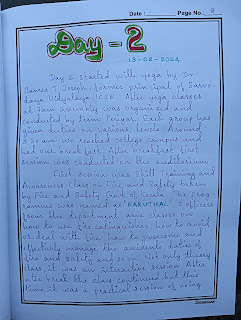 Date :
Page No : 2
Day - 2
13-02-2024
Day 2 started with yoga by Dr.
James T Joseph, former principal of Sarvo-
daya Vidyalaya ICSE. After yoga classes
at 7am assembly was organized and
conducted by team Periyar. Each group has
given duties on various levels. Around
8:30am we reached college campus and
had our break fast. After breakfast first
session was conducted on the auditorium.
First session was Skill Training and
Awareness class on Fire and Safety taken
by Fire and Safety Govt of Kerala. The prog-
ramme was named as KARUTHAL. 3 officers
from the department gave classes on
how to use fire extinguisher, how to avoid
or deal with fire, how to overcome and
effectively manage the accidents, duties of
fire and safety and soon. Not only theory
class, it was an interactive session. After
a tea break the class continued but this
time it was a practical session of using